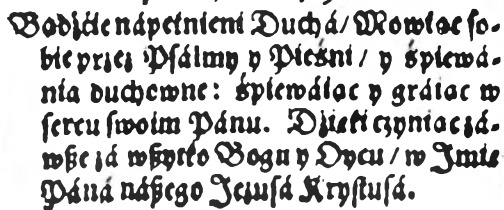 Bądźćie nápełnieni Duchá/ Mowiąc so-
bie przez Psálmy y Pieśni / y śpiewá-
nia duchowne: śpiewáiąc y gráiąc w
sercu swoim Pánu. Dzięki czyniąc zá-
wße zá wßytko Bogu y Oycu / w Imię
Páná náßego Jezusá Krystusá.